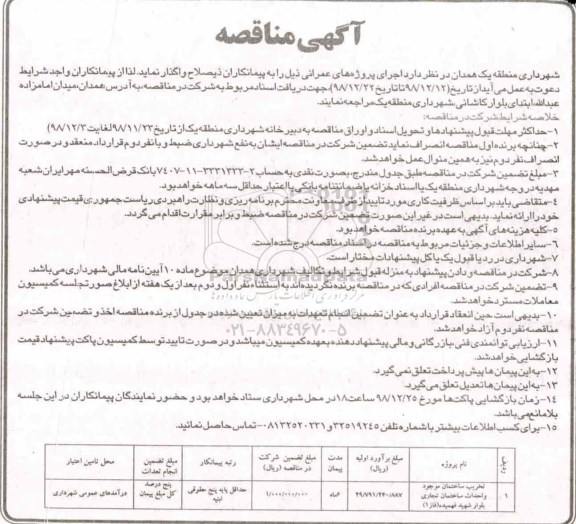 آگهی مناقصه
شهرداری منطقه یک همدان در نظر دارد اجرای پروژه های عمرانی ذیل را به پیمانکاران ذیصلاح واگذار نماید. لذا از پیمانکاران واجد شرایط
دعوت به عمل می آید از تاریخ (۹۸/۱۲/۱۲ تا تاریخ ۹۸/۱۲/۲۲) جهت دریافت اسناد مربوط به شرکت در مناقصه، به آدرس: همدان، میدان امامزاده
عبدالله، ابتدای بلوار کاشانی، شهرداری منطقه یک مراجعه نمایند.
خلاصه شرایط شرکت در مناقصه:
۱- حداکثر مهلت قبول پیشنهادها و تحویل اسناد و اوراق مناقصه به دبیرخانه شهرداری منطقه یک از تاریخ ۹۸/۱۱/۲۳ لغایت ۹۸/۱۲/۳)
۲- چنانچه برنده اول مناقصه انصراف نماید تضمین شرکت در مناقصه ایشان به نفع شهرداری ضبط و با نفر دوم قرارداد منعقد و در صورت
انصراف نفر دوم نیز به همین منوال عمل خواهد شد.
۳- مبلغ تضمین شرکت در مناقصه طبق جدول مندرج، بصورت نقدی به حساب ۲-۳۳۳۱۳۳۳-۱۱-۷۴۰۷ بانک قرض الحسنه مهر ایران شعبه
مهدیه در وجه شهرداری منطقه یک یا اسناد خزانه یا ضمانتنامه بانکی با اعتبار حداقل سه ماهه خواهد بود.
۴- متقاضی باید بر اساس ظرفیت کاری مورد تایید از طرف معاونت محترم برنامه ریزی و نظارت راهبردی ریاست جمهوری قیمت پیشنهادی
خود را ارائه نماید. بدیهی است در غیر این صورت تضمین شرکت در مناقصه ضبط و برابر مقررات اقدام می گردد.
۵- کلیه هزینه های آگهی به عهده برنده مناقصه خواهد بود.
۶- سایر اطلاعات و جزئیات مربوط به مناقصه در اسناد مناقصه درج شده است.
۷- شهرداری در رد یا قبول یک یا کل پیشنهادات مختار است.
۸- شرکت در مناقصه و دادن پیشنهاد به منزله قبول شرایط و تکالیف شهرداری همدان موضوع ماده ۱۰ آیین نامه مالی شهرداری می باشد.
۹- تضمین شرکت در مناقصه افرادی که در مناقصه برنده نگردیده اند به استثناء نفر اول و دوم بعد از یک هفته از ابلاغ صورتجلسه کمیسیون
معاملات مسترد خواهد شد.
۱۰- بدیهی است حین انعقاد قرارداد به عنوان تضمین انجام تعهدات به میزان تعیین شده در جدول از برنده مناقصه اخذ و تضمین شرکت در
مناقصه نفر دوم آزاد خواهد شد.
۱۱- ارزیابی توانمندی فنی، بازرگانی و مالی پیشنهاد دهنده بعهده کمیسیون میباشد و در صورت تایید توسط کمیسیون پاکت پیشنهاد قیمت
بازگشایی خواهد شد.
۱۲- به این پیمان ها پیش پرداخت تعلق نمی گیرد.
۱۳- به این پیمان ها تعدیل تعلق می گیرد.
۱۴- زمان بازگشایی پاکت ها مورخ ۹۸/۱۲/۲۵ ساعت ۱۸ در محل شهرداری ستاد خواهد بود و حضور نمایندگان پیمانکاران در این جلسه
بلامانع می باشد.
۱۵- برای کسب اطلاعات بیشتر با شماره تلفن ۳۲۵۱۹۲۴۵ و ۰۸۱۳۲۵۲۰۳۳۱ تماس حاصل نمائید.
ردیف نام پروژه مبلغ برآورد اولیه (ریال) مدت پیمان مبلغ تضمین شرکت در مناقصه (ریال) رتبه پیمانکار مبلغ تضمین انجام تعهدات محل تامین اعتبار
۱ تخریب ساختمان موجود و احداث ساختمان تجاری بلوار شهید فهمیده (فاز ۱) ۴۹/۷۹۱/۲۴۰/۸۸۷ ۶ماه ۱/۰۰۰/۰۰۰/۰۰۰ حداقل پایه پنج حقوقی ابنیه پنج درصد کل مبلغ پیمان درآمدهای عمومی شهرداری
۰۲۱-۸۸۳۴۹۶۷۰-۵